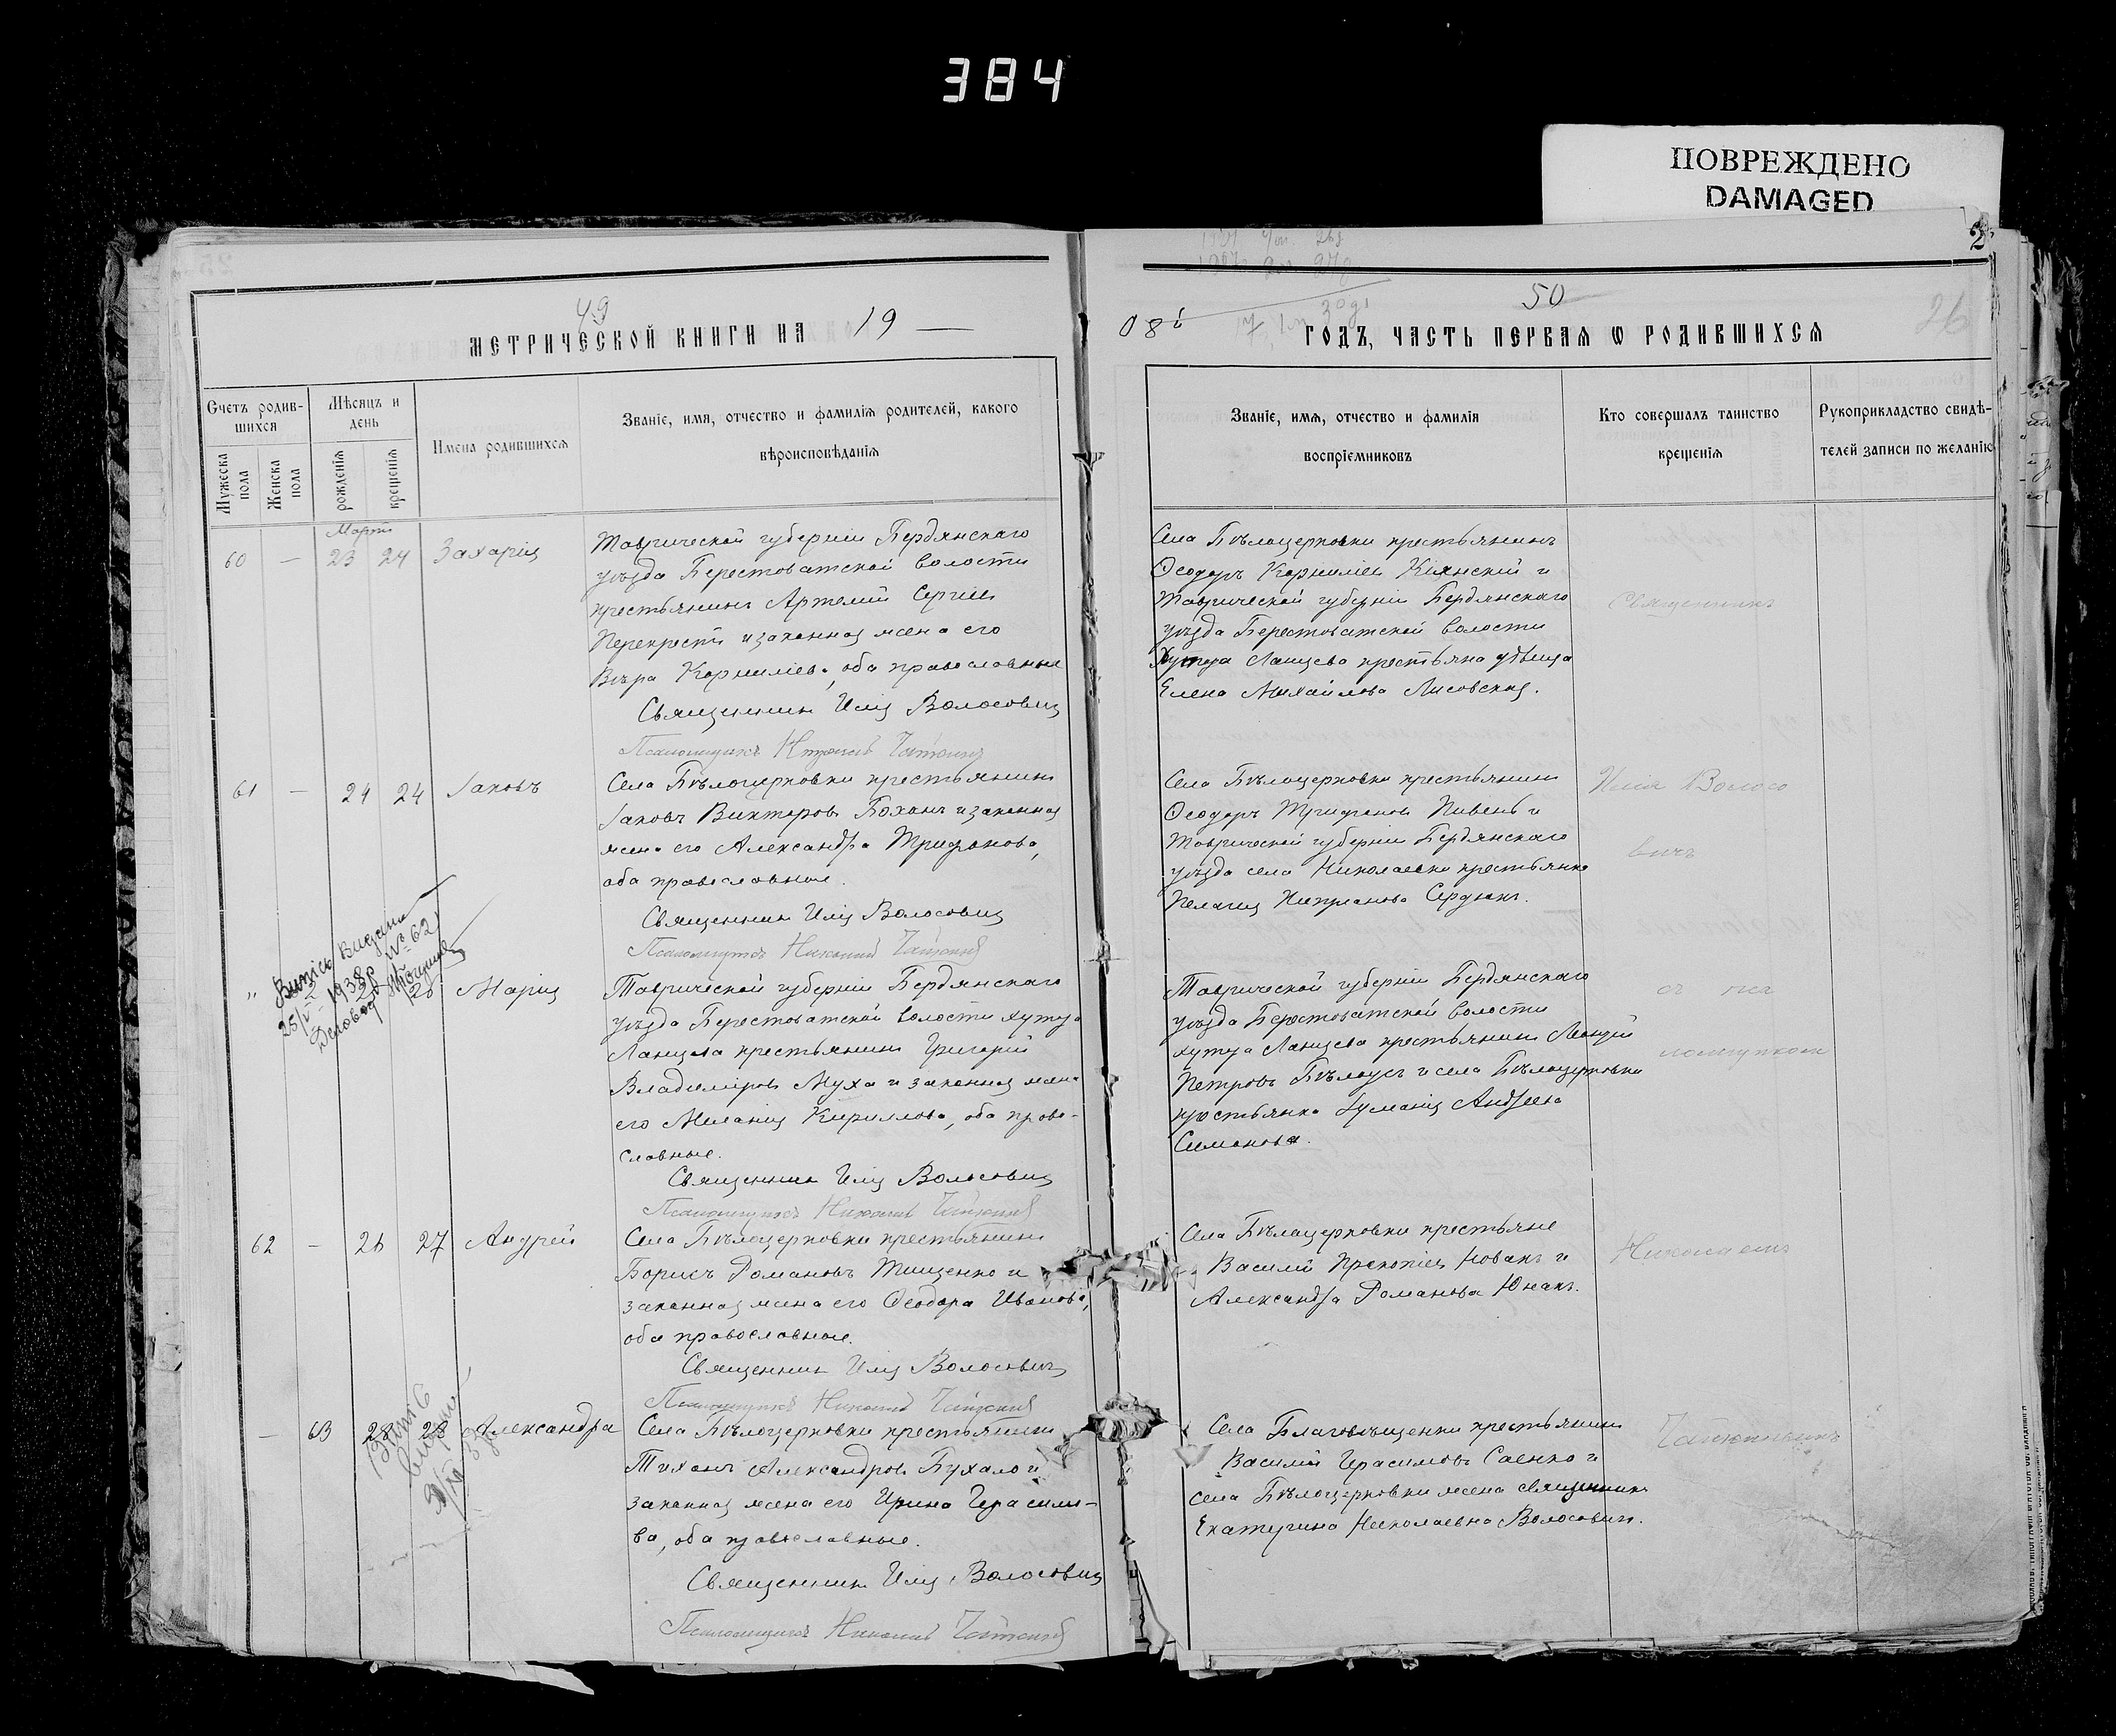 384
ПОВРЕЖДЕНО
DAMAGED
2
49
МЕТРИЧЕСКОЙ КНИГИ НА 19 —
Счетъ родив-
шихся
Мѣсяцъ и
день
Имена родившихся
Званіе, имя, отчество и фамилія родителей, какого
вѣроисповѣданія
Мужеска
пола
Женска
пола
рожденія
крещенія
Мартъ
60 — 23 24 Захарія
Таврической губерніи Бердянскаго
уѣзда Берестоватской волости
крестьянинъ Артемій Сергіев
Перекрестъ и законная жена его
Вѣра Корниліева, оба православные
Священникъ Илія Волосовичъ
Псаломщикъ Николай
61 — 24 24 Іаковъ
Села Бѣлоцерковки крестьянинъ
Іаковъ Викторовъ Боханъ и законная
жена его Александра Трифонова,
оба православные.
Священникъ Илія Волосовичъ
Псаломщикъ Николай
Випись Видана
1938р № 62
Діловод
" Марія
Таврической губерніи Бердянскаго
уѣзда Берестоватской волости хутора
Ланцева крестьянинъ Григорій
Владиміровъ Муха и законная жена
его Меланія Кириллова, оба право-
славные.
Священникъ Илія Волосовичъ
Псаломщикъ Николай
62 — 26 27 Андрей
Села Бѣлоцерковки крестьянинъ
Борисъ Романовъ Тищенко и
законная жена его Ѳеодора Иванова,
оба православные.
Священникъ Илія Волосовичъ
Псаломщикъ Николай
— 63 28 28 Александра
Села Бѣлоцерковки крестьянинъ
Тихонъ Александровъ Бухало и
законная жена его Ирина Герасимо-
ва, оба православные.
Священникъ Илія Волосовичъ
Псаломщикъ Николай
50
26
08й ГОДЪ, ЧАСТЬ ПЕРВАЯ Ѡ РОДИВШИХСЯ
Званіе, имя, отчество и фамилія
воспріемниковъ
Кто совершалъ таинство
крещенія
Рукоприкладство свидѣ-
телей записи по желанію
Села Бѣлоцерковки крестьянинъ
Ѳеодоръ Корниліев Кіянскій и
Таврической губерніи Бердянскаго
уѣзда Берестоватской волости
Хутора Ланцева крестьянка дѣвица
Елена Михайлова Лисовская.
Села Бѣлоцерковки крестьянинъ
Ѳеодоръ Трифоновъ Пивень и
Таврической губерніи Бердянскаго
уѣзда села Николаевки крестьянка
Пелагія Сердюкъ.
Таврической губерніи Бердянскаго
уѣзда Берестоватской волости
хутора Ланцева крестьянинъ
Петровъ Бѣлоусъ и села Бѣлоцерковки
крестьянка Андреева
Симонова.
Села Бѣлоцерковки крестьяне
Василій Прокопіев Новакъ и
Александра Романова Юнакъ.
Села Благовѣщенки крестьянинъ
Василій Герасимовъ Саенко и
села Бѣлоцерковки жена священника
Екатерина Николаевна Волосовичъ.
Священникъ
Илія Волосо
вичъ
съ пса
ломщикомъ
Николаемъ